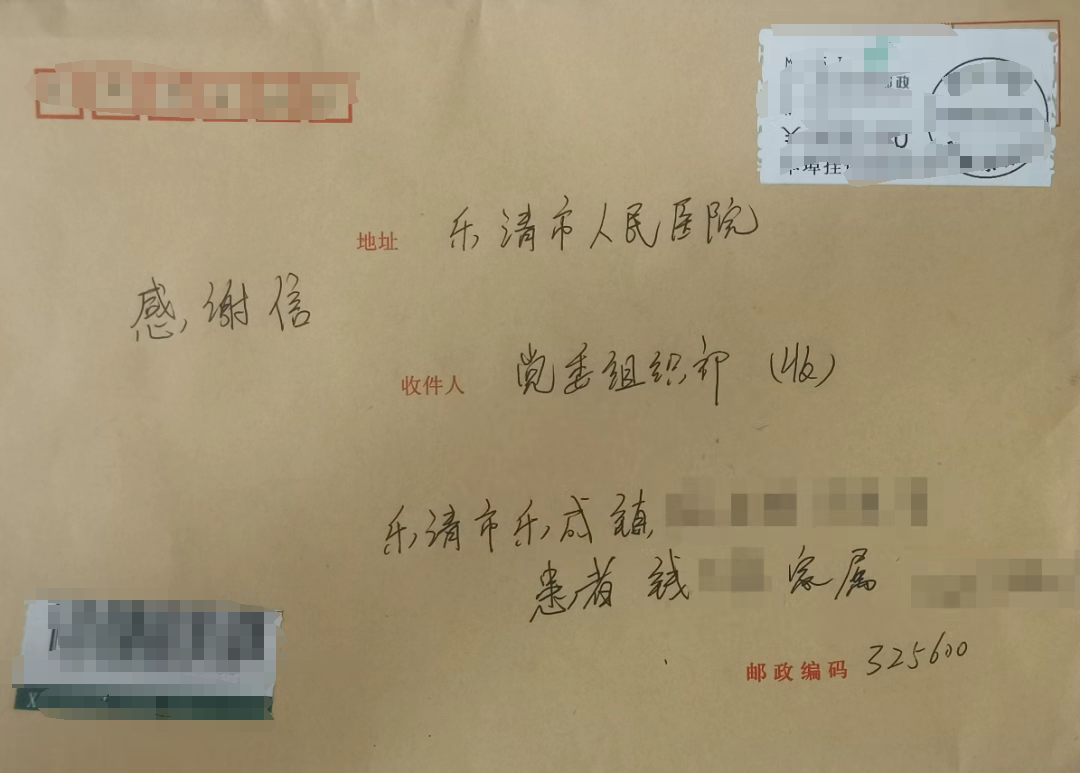 地址 乐清市人民医院
感谢信
收件人 党委组织部（收）
乐清市乐成镇
患者钱 家属
邮政编码 325600